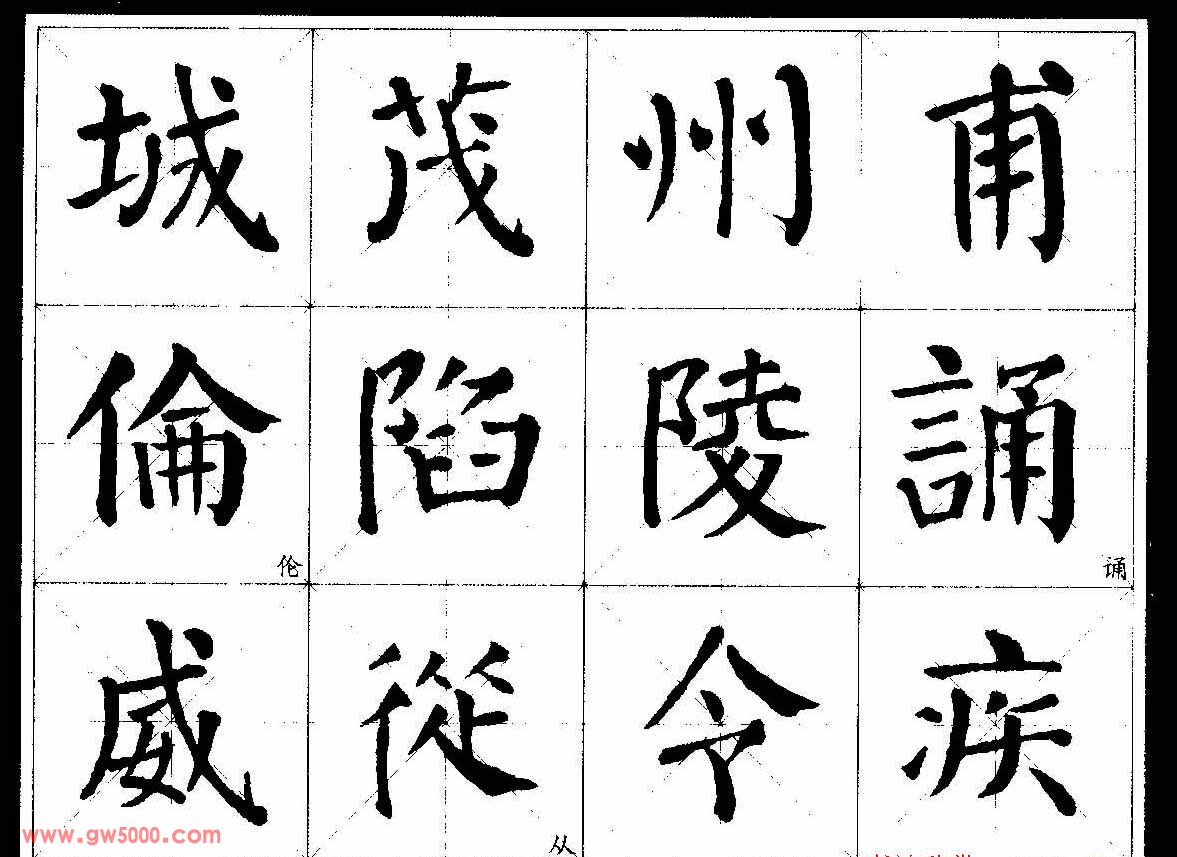 城 茂 州 甫
倫 陷 陵 誦
伦 诵
威 從 令 疾
从
www.gw5000.com